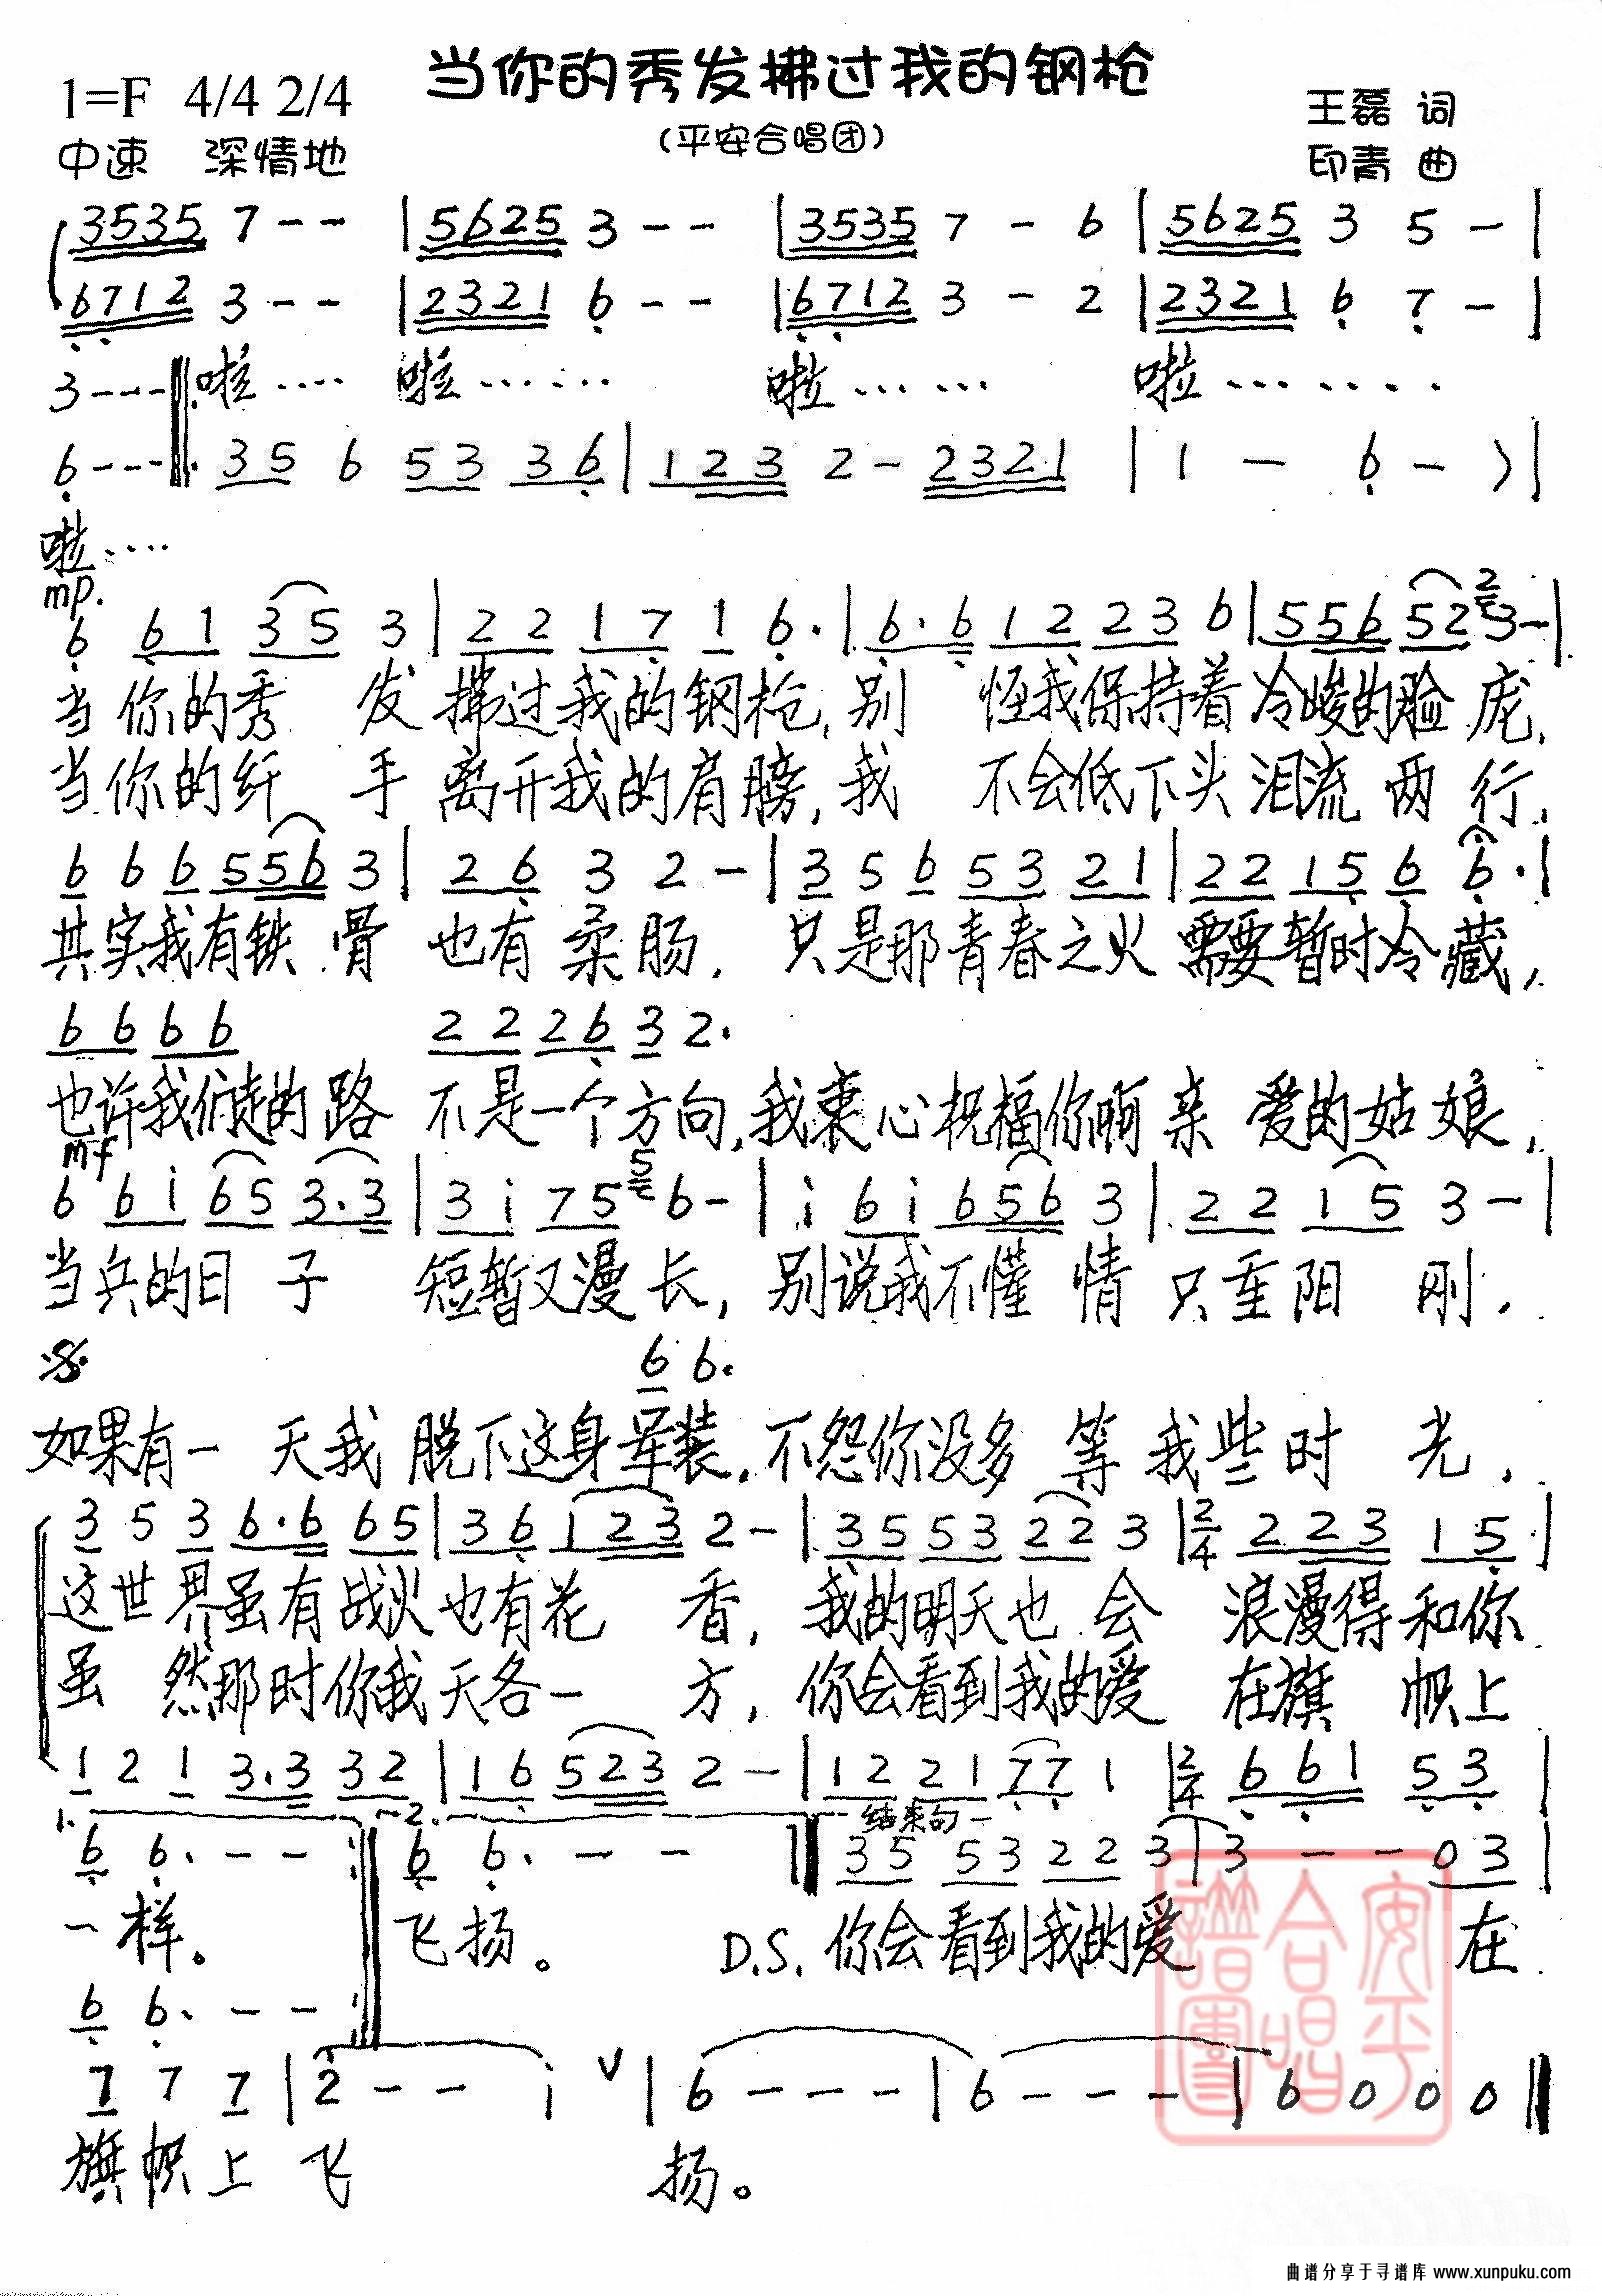 当你的秀发拂过我的钢枪
1=F 4/4 2/4
（平安合唱团）
王磊 词
中速 深情地
印青 曲
3535 7 - - | 5625 3 - - | 3535 7 - 6 | 5625 3 5 - |
6712 3 - - | 2321 6 - - | 6712 3 - 2 | 2321 6 7 - |
3 - - - 啦 ···· 啦 ······ 啦 ······ 啦 ·······
6 - - - 35 6 53 36 | 123 2 - 2321 | 1 - 6 - > |
啦 ····
mp.
6 61 35 3 | 22 17 1 6· | 6·6 12 23 6 | 556 52 2 3 - |
当你的秀 发拂过我的钢枪,别 怪我保持着冷峻的脸庞,
当你的纤 手离开我的肩膀,我 不会低下头泪流两行,
6 6 6 556 3 | 26 3 2 - | 3 5 6 53 21 | 22 15 6 6· |
其实我有铁骨也有柔肠,只是那青春之火需要暂时冷藏,
66 66 22 26 3 2·
也许我们走的路不是一个方向,我衷心祝福你啊亲爱的姑娘,
mf
6 6i 65 3·3 | 3i 75 5 6 - | i 6i 656 3 | 22 15 3 - |
当兵的日子 短暂又漫长,别说我不懂情只重阳刚.
6 6·
如果有一天我脱下这身军装,不怨你没多等我些时光,
3 5 3 6·6 65 | 36 123 2 - | 35 53 22 3 | 2/4 223 15 |
这世界虽有战火也有花香,我的明天也会浪漫得和你
虽然那时你我天各一方,你会看到我的爱在旗帜上
1 2 1 3·3 32 | 16 523 2 - | 12 21 77 1 | 2/4 661 53 |
1. 2. 结束句
6 6· - - 6 6· - - 35 53 22 3 | 3 - - 03 |
一样。 飞扬。 D.S. 你会看到我的爱 在
6 6· - -
7 7 7 | 2 - - i V | 6 - - - | 6 - - - | 6 0 0 0
旗帜上飞 扬。
安平合唱谱图
曲谱分享于寻谱库 www.xunpuku.com